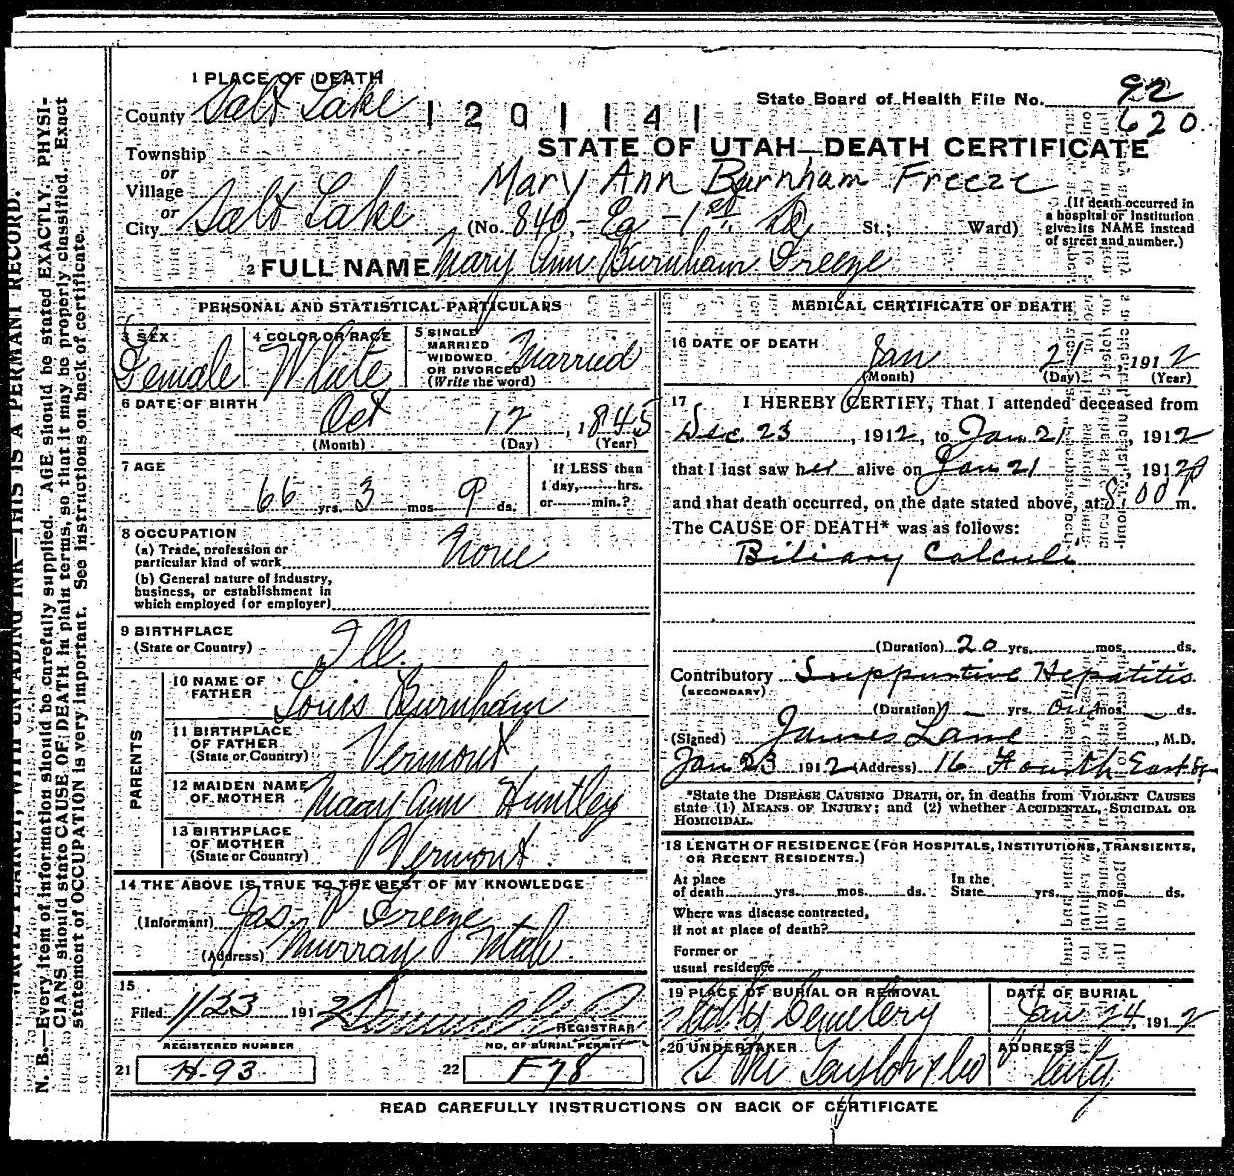 1 PLACE OF DEATH
County Salt Lake
1201141
State Board of Health File No. 92
620
Township
or
Village
or
City Salt Lake
STATE OF UTAH—DEATH CERTIFICATE
Mary Ann Burnham Freeze
(No. 840 - Ea - 1st St.; Ward)
(If death occurred in
a hospital or institution
give its NAME instead
of street and number.)
2 FULL NAME Mary Ann Burnham Freeze
PERSONAL AND STATISTICAL PARTICULARS
3 SEX
Female
4 COLOR OR RACE
White
5 SINGLE
MARRIED
WIDOWED
OR DIVORCED
(Write the word)
Married
6 DATE OF BIRTH
Oct 12, 1845
(Month) (Day) (Year)
7 AGE
66 yrs. 3 mos 9 ds.
If LESS than
1 day, hrs.
or min.?
8 OCCUPATION
(a) Trade, profession or
particular kind of work None
(b) General nature of industry,
business, or establishment in
which employed (or employer)
9 BIRTHPLACE
(State or Country) Ill.
PARENTS
10 NAME OF
FATHER Louis Burnham
11 BIRTHPLACE
OF FATHER
(State or Country) Vermont
12 MAIDEN NAME
OF MOTHER Mary Ann Huntley
13 BIRTHPLACE
OF MOTHER
(State or Country) Vermont.
14 THE ABOVE IS TRUE TO THE BEST OF MY KNOWLEDGE
(Informant) Jas. P Freeze
(Address) Murray Utah
15
Filed 1/23 1912
REGISTRAR
REGISTERED NUMBER
21 H-93
NO. OF BURIAL PERMIT
22 F78
MEDICAL CERTIFICATE OF DEATH
16 DATE OF DEATH
Jan 21 1912
(Month) (Day) (Year)
17 I HEREBY CERTIFY, That I attended deceased from
Dec. 23, 1912, to Jan 21, 1912
that I last saw her alive on Jan 21 1912
and that death occurred, on the date stated above, at 8 00 P m.
The CAUSE OF DEATH* was as follows:
Biliary Calculi
(Duration) 20 yrs. mos. ds.
Contributory Suppurtive Hepatitis
(SECONDARY)
(Duration) — yrs. one mos. — ds.
(Signed) James Lane, M.D.
Jan 23 1912 (Address) 16 Fourth East St
*State the DISEASE CAUSING DEATH, or, in deaths from VIOLENT CAUSES
state (1) MEANS OF INJURY; and (2) whether ACCIDENTAL, SUICIDAL OR
HOMICIDAL.
18 LENGTH OF RESIDENCE (FOR HOSPITALS, INSTITUTIONS, TRANSIENTS,
OR RECENT RESIDENTS.)
At place
of death yrs. mos. ds.
In the
State yrs. mos. ds.
Where was disease contracted,
if not at place of death?
Former or
usual residence
19 PLACE OF BURIAL OR REMOVAL
City Cemetery
DATE OF BURIAL
Jan 24, 1912
20 UNDERTAKER
S M Taylor & Co
ADDRESS
City
READ CAREFULLY INSTRUCTIONS ON BACK OF CERTIFICATE
WRITE PLAINLY, WITH UNFADING INK—THIS IS A PERMANT RECORD.
N. B.—Every item of information should be carefully supplied. AGE should be stated EXACTLY. PHYSI-
CIANS should state CAUSE OF DEATH in plain terms, so that it may be properly classified. Exact
statement of OCCUPATION is very important. See instructions on back of certificate.